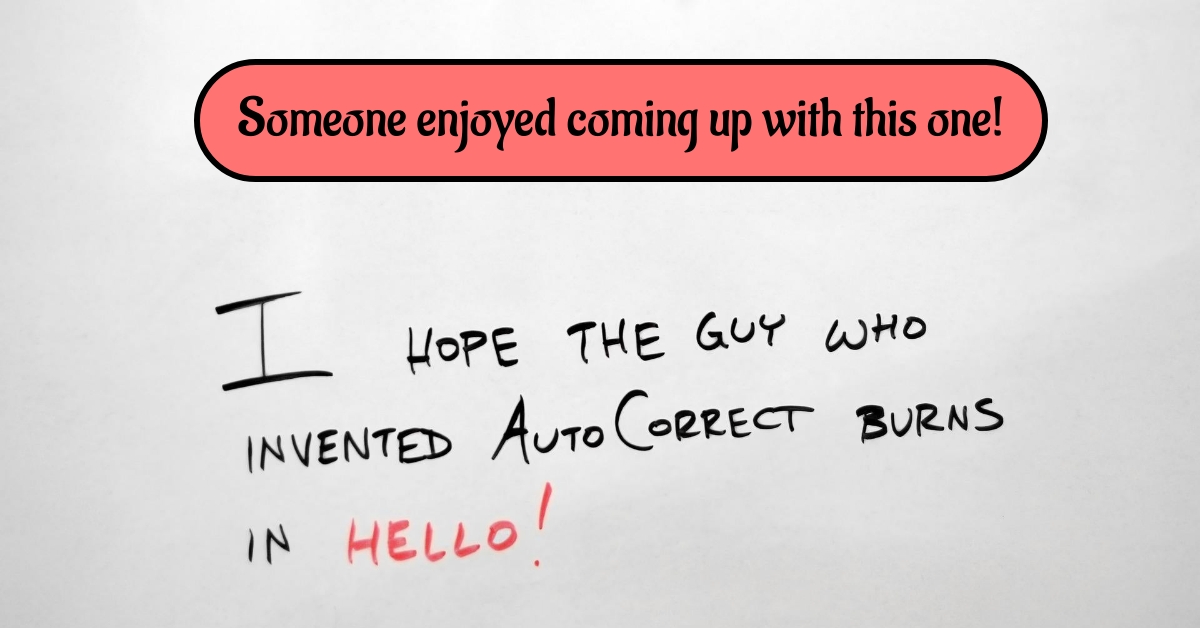 Someone enjoyed coming up with this one!
I HOPE THE GUY WHO
INVENTED AUTOCORRECT BURNS
IN HELLO!